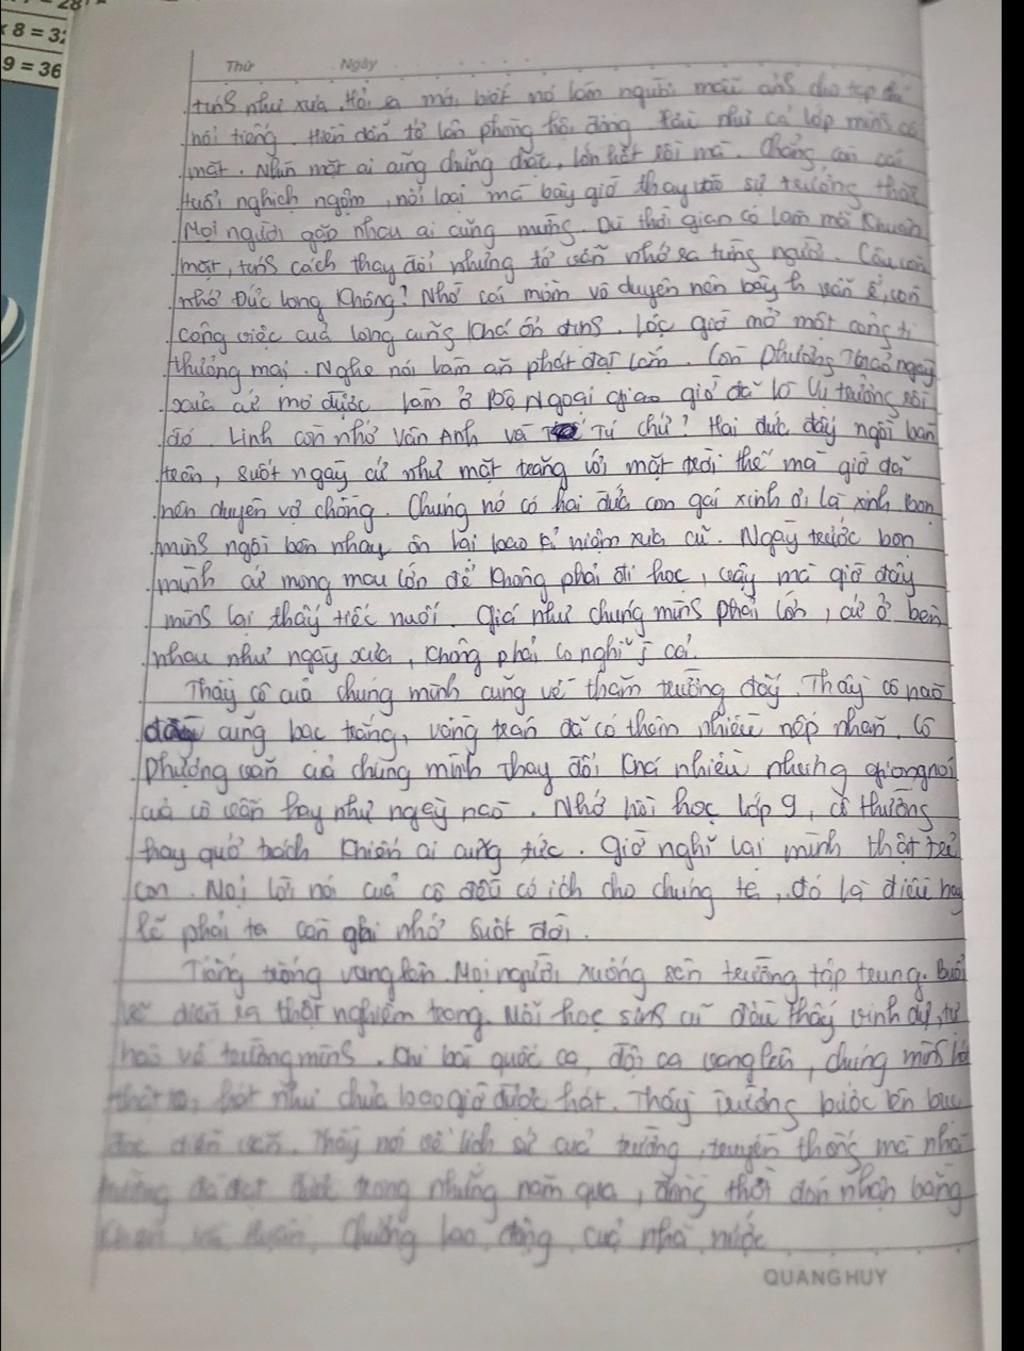 28
x 8 = 32
9 = 36
Thứ Ngày
tính như xưa. Hỏi ra mới biết nó làm người mẫu ảnh cho tạp chí
nổi tiếng. Hiền dẫn tớ lên phòng hội đồng. Hầu như cả lớp mình có
mặt. Nhìn mặt ai cũng chững chạc, lớn hết rồi mà. Chẳng còn cái
tuổi nghịch ngợm, nổi loạn mà bây giờ thay vào sự trưởng thành
Mọi người gặp nhau ai cũng mừng. Dù thời gian có làm mỗi khuôn
mặt, tính cách thay đổi nhưng tớ vẫn nhớ ra từng người. Cậu còn
nhớ Đức Long không? Nhờ cái mồm vô duyên nên bây h vẫn ế, còn
công việc của Long cũng khá ổn định. Lộc giờ mở một công ti
thương mại. Nghe nói làm ăn phát đạt lắm. Còn Phương Thảo ngày
xưa cứ mơ được làm ở Bộ Ngoại giao giờ đã là Vụ trưởng rồi
đó. Linh còn nhớ Vân Anh và Tú chứ? Hai đứa đấy ngồi bàn
trên, suốt ngày cứ như mặt trăng với mặt trời thế mà giờ đã
nên duyên vợ chồng. Chúng nó có hai đứa con gái xinh ơi là xinh bọn
mình ngồi bên nhau ôn lại bao kỉ niệm xưa cũ. Ngày trước bọn
mình cứ mong mau lớn để không phải đi học, vậy mà giờ đây
mình lại thấy tiếc nuối. Giá như chúng mình phải lớn, cứ ở bên
nhau như ngày xưa, không phải lo nghĩ j cả.
Thầy cô của chúng mình cũng về thăm trường đấy. Thầy cô nào
cũng bạc trắng, vầng trán đã có thêm nhiều nếp nhăn. Cô
Phượng văn của chúng mình thay đổi khá nhiều nhưng giọng nói
của cô vẫn hay như ngày nào. Nhớ hồi học lớp 9, cô thường
hay quở trách khiến ai cũng tức. Giờ nghĩ lại mình thật trẻ
con. Mọi lời nói của cô đều có ích cho chúng ta, đó là điều hay
lẽ phải ta cần ghi nhớ suốt đời.
Tiếng trống vang lên. Mọi người xuống sân trường tập trung. Buổi
lễ diễn ra thật nghiêm trang. Mỗi học sinh cũ đều thấy vinh dự, tự
hào về trường mình. Khi bài quốc ca, đội ca vang lên, chúng mình hát
thật to, hát như chưa bao giờ được hát. Thầy trưởng bước lên bục
đọc diễn văn. Thầy nói về lịch sử của trường, truyền thống mà nhà
trường đã đạt được trong những năm qua, đồng thời đón nhận bằng
khen và Huân chương lao động của nhà nước
QUANGHUY